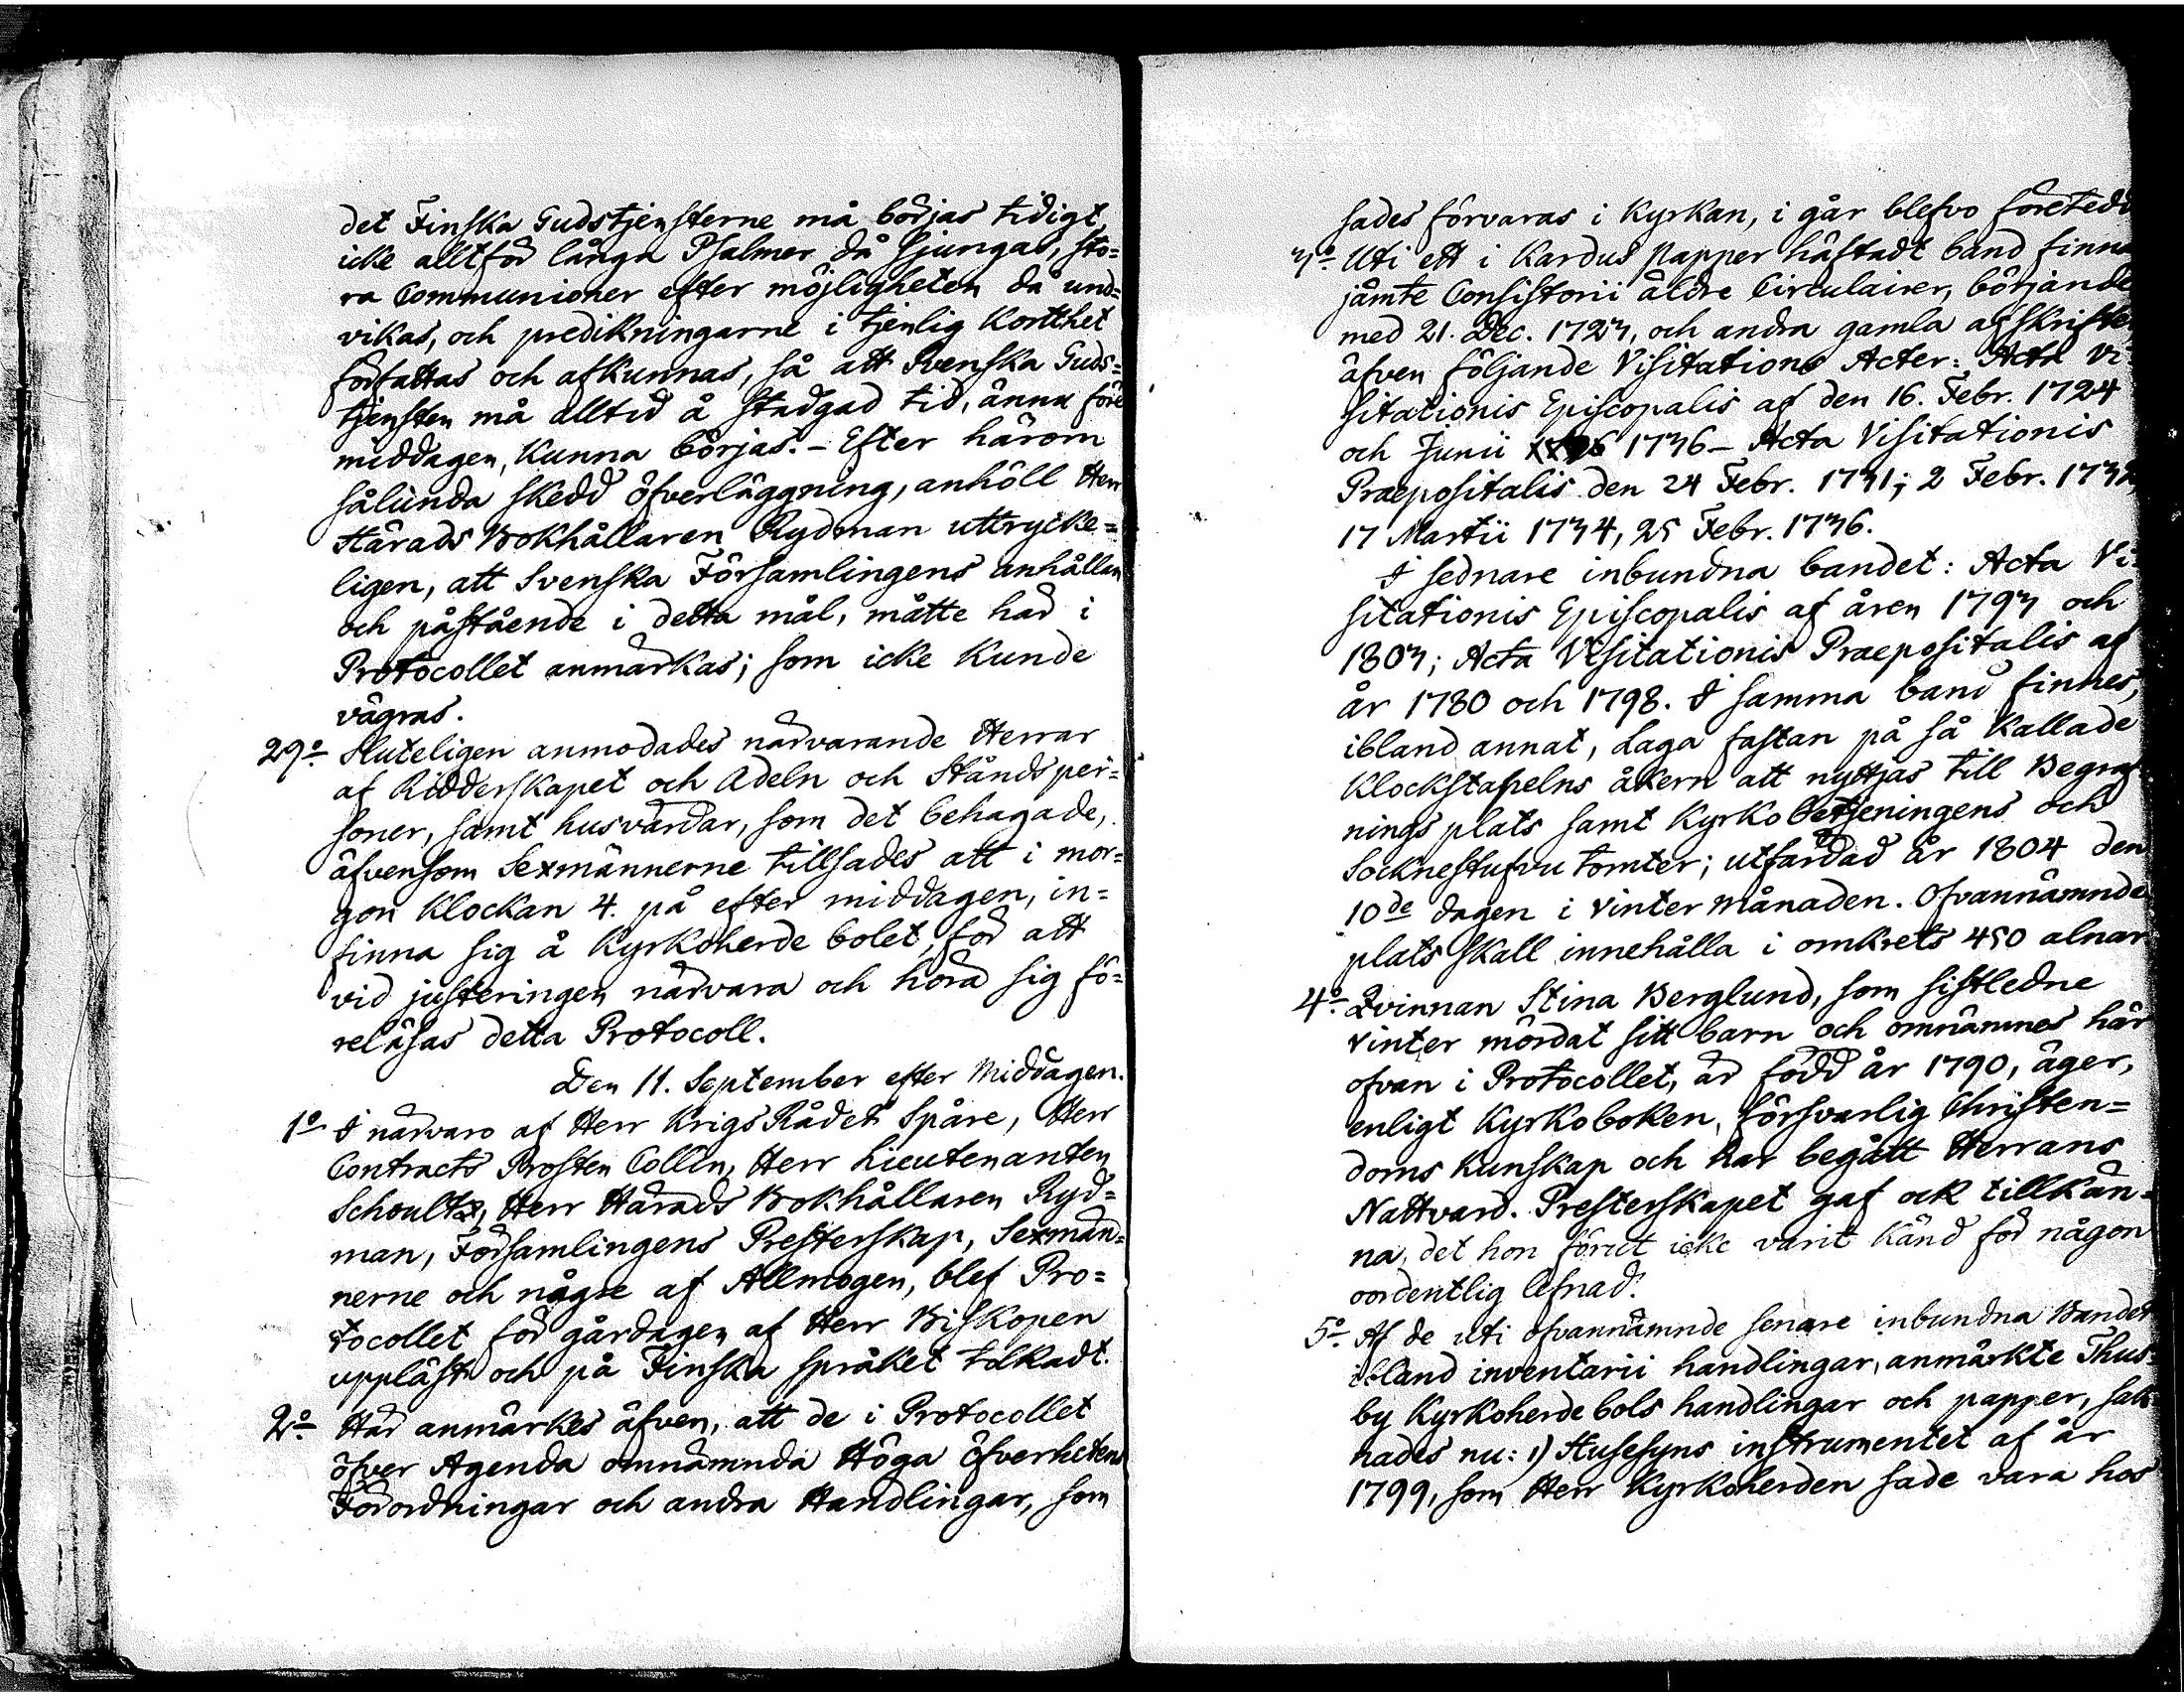 det Finska Gudstjensterne må börjas tidigt,
icke alltför långa Psalmer då sjungas, sto=
ra Communioner efter möjligheten då und=
vikas, och predikningarne i tjenlig Korthet
författas och afkunnas, så att Svenska Guds=
tjensten må alltid å stadgad tid, ännu före
middagen, Kunna börjas. - Efter härom
sålunda skedd öfverläggning, anhöll Herr
Härads Bokhållaren Rydman uttrycke=
ligen, att Svenska Församlingens anhållan
och påstående i detta mål, måtte här i
Protocollet anmärkas; som icke Kunde
vägras.
29º Sluteligen anmodades närvarande Herrar
af Ridderskapet och Adeln och Ståndsper=
soner, samt husvärdar, som det behagade,
äfvensom Sexmännerne tillsades att i mor=
gon Klockan 4. på efter middagen, in=
finna sig å Kyrkoherde bolet, för att
vid justeringen närvara och höra sig fö=
reläsas detta Protocoll.
Den 11. September efter Middagen.
1º I närvaro af Herr KrigsRådet Spåre, Herr
Contracts Prosten Collin, Herr Lieutenanten
Schoultz, Herr Härads Bokhållaren Ryd=
man, Församlingens Presterskap, Sexmän=
nerne och någre af Allmogen, blef Pro=
tocollet för gårdagen af Herr Biskopen
uppläst och på Finska språket tolkadt.
2º Här anmärkes äfven, att de i Protocollet
öfver Agenda omnämnda Höga Öfverhetens
Förordningar och andra Handlingar, som
sades förvaras i Kyrkan, i går blefvo företedd
3º Uti ett i Kardus papper häftadt band finna
jämte Consistorii äldre Circulairer, börjande
med 21. Dec. 1723, och andra gamla afskrifter
äfven följande Visitations Acter: Acta Vi=
sitationis Episcopalis af den 16. Febr. 1724
och Junii 1736 - Acta Visitationis
Praepositalis den 24 Febr. 1731; 2 Febr. 1732,
17 Martii 1734, 25 Febr. 1736.
I sednare inbundna bandet: Acta Vi=
sitationis Episcopalis af åren 1793 och
1803; Acta Visitationis Praepositalis af
år 1780 och 1798. I samma band finnes,
ibland annat, Laga fastan på så Kallade
Klockstapelns åkern att nyttjas till Begraf=
nings plats samt Kyrkobetjeningens och
Socknestufvu tomter; utfärdad år 1804 den
10de dagen i Vinter månaden. Ofvannämnde
plats skall innehålla i omkrets 450 alnar
4º Qvinnan Stina Berglund, som sistledne
vinter mördat sitt barn och omnämnes här
ofvan i Protocollet, är född år 1790, äger,
enligt Kyrkoboken, försvarlig Christen=
doms Kunskap och har begått Herrans
Nattvard. Presterskapet gaf ock tillkän=
na, det hon förut icke varit Känd för någon
oordentlig lefnad.
5º Af de uti ofvannämnde senare inbundna Bandet
ibland inventarii handlingar, anmärkte Thus=
by Kyrkoherde bols handlingar och papper, sak=
nades nu: 1) Husesyns instrumentet af år
1799, som Herr Kyrkoherden sade vara hos